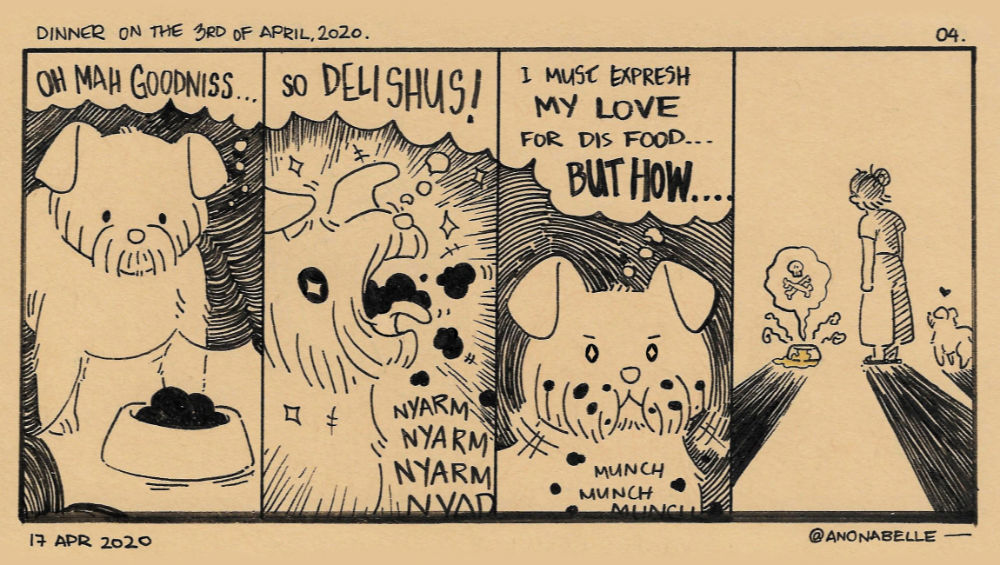 DINNER ON THE 3RD OF APRIL, 2020.
04.
OH MAH GOODNISS...
SO DELISHUS!
NYARM
NYARM
NYARM
I MUST EXPRESH
MY LOVE
FOR DIS FOOD...
BUT HOW....
MUNCH
MUNCH
MUNCH
17 APR 2020
@ANONABELLE